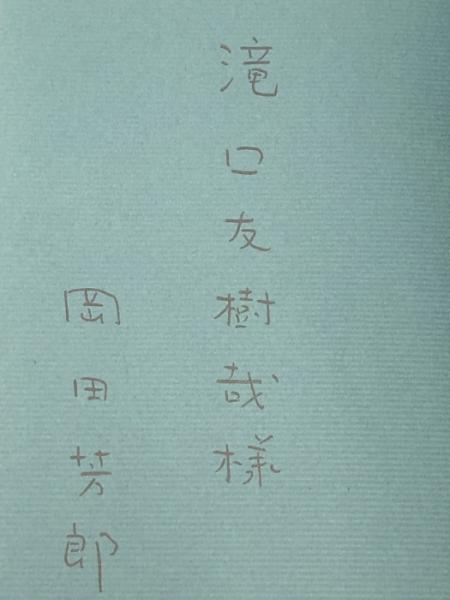 滝口友樹哉様
岡田芳郎